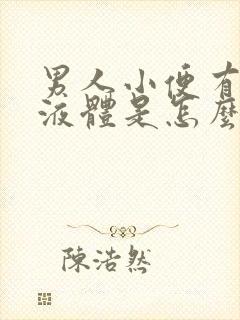 男人小便有
液體是怎麼
陳浩然